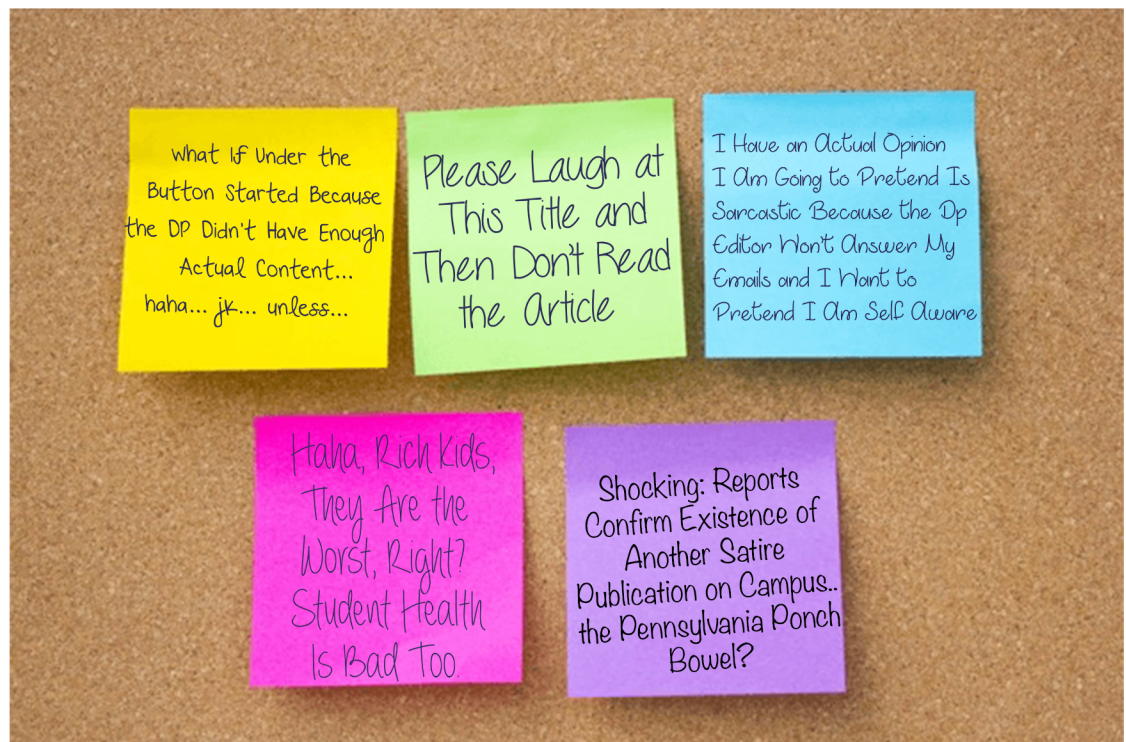 What If Under the
Button Started Because
the DP Didn't Have Enough
Actual Content...
haha... jk... unless...
Please Laugh at
This Title and
Then Don't Read
the Article
I Have an Actual Opinion
I Am Going to Pretend Is
Sarcastic Because the Dp
Editor Won't Answer My
Emails and I Want to
Pretend I Am Self Aware
Haha, Rich Kids,
They Are the
Worst, Right?
Student Health
Is Bad Too.
Shocking: Reports
Confirm Existence of
Another Satire
Publication on Campus..
the Pennsylvania Ponch
Bowel?